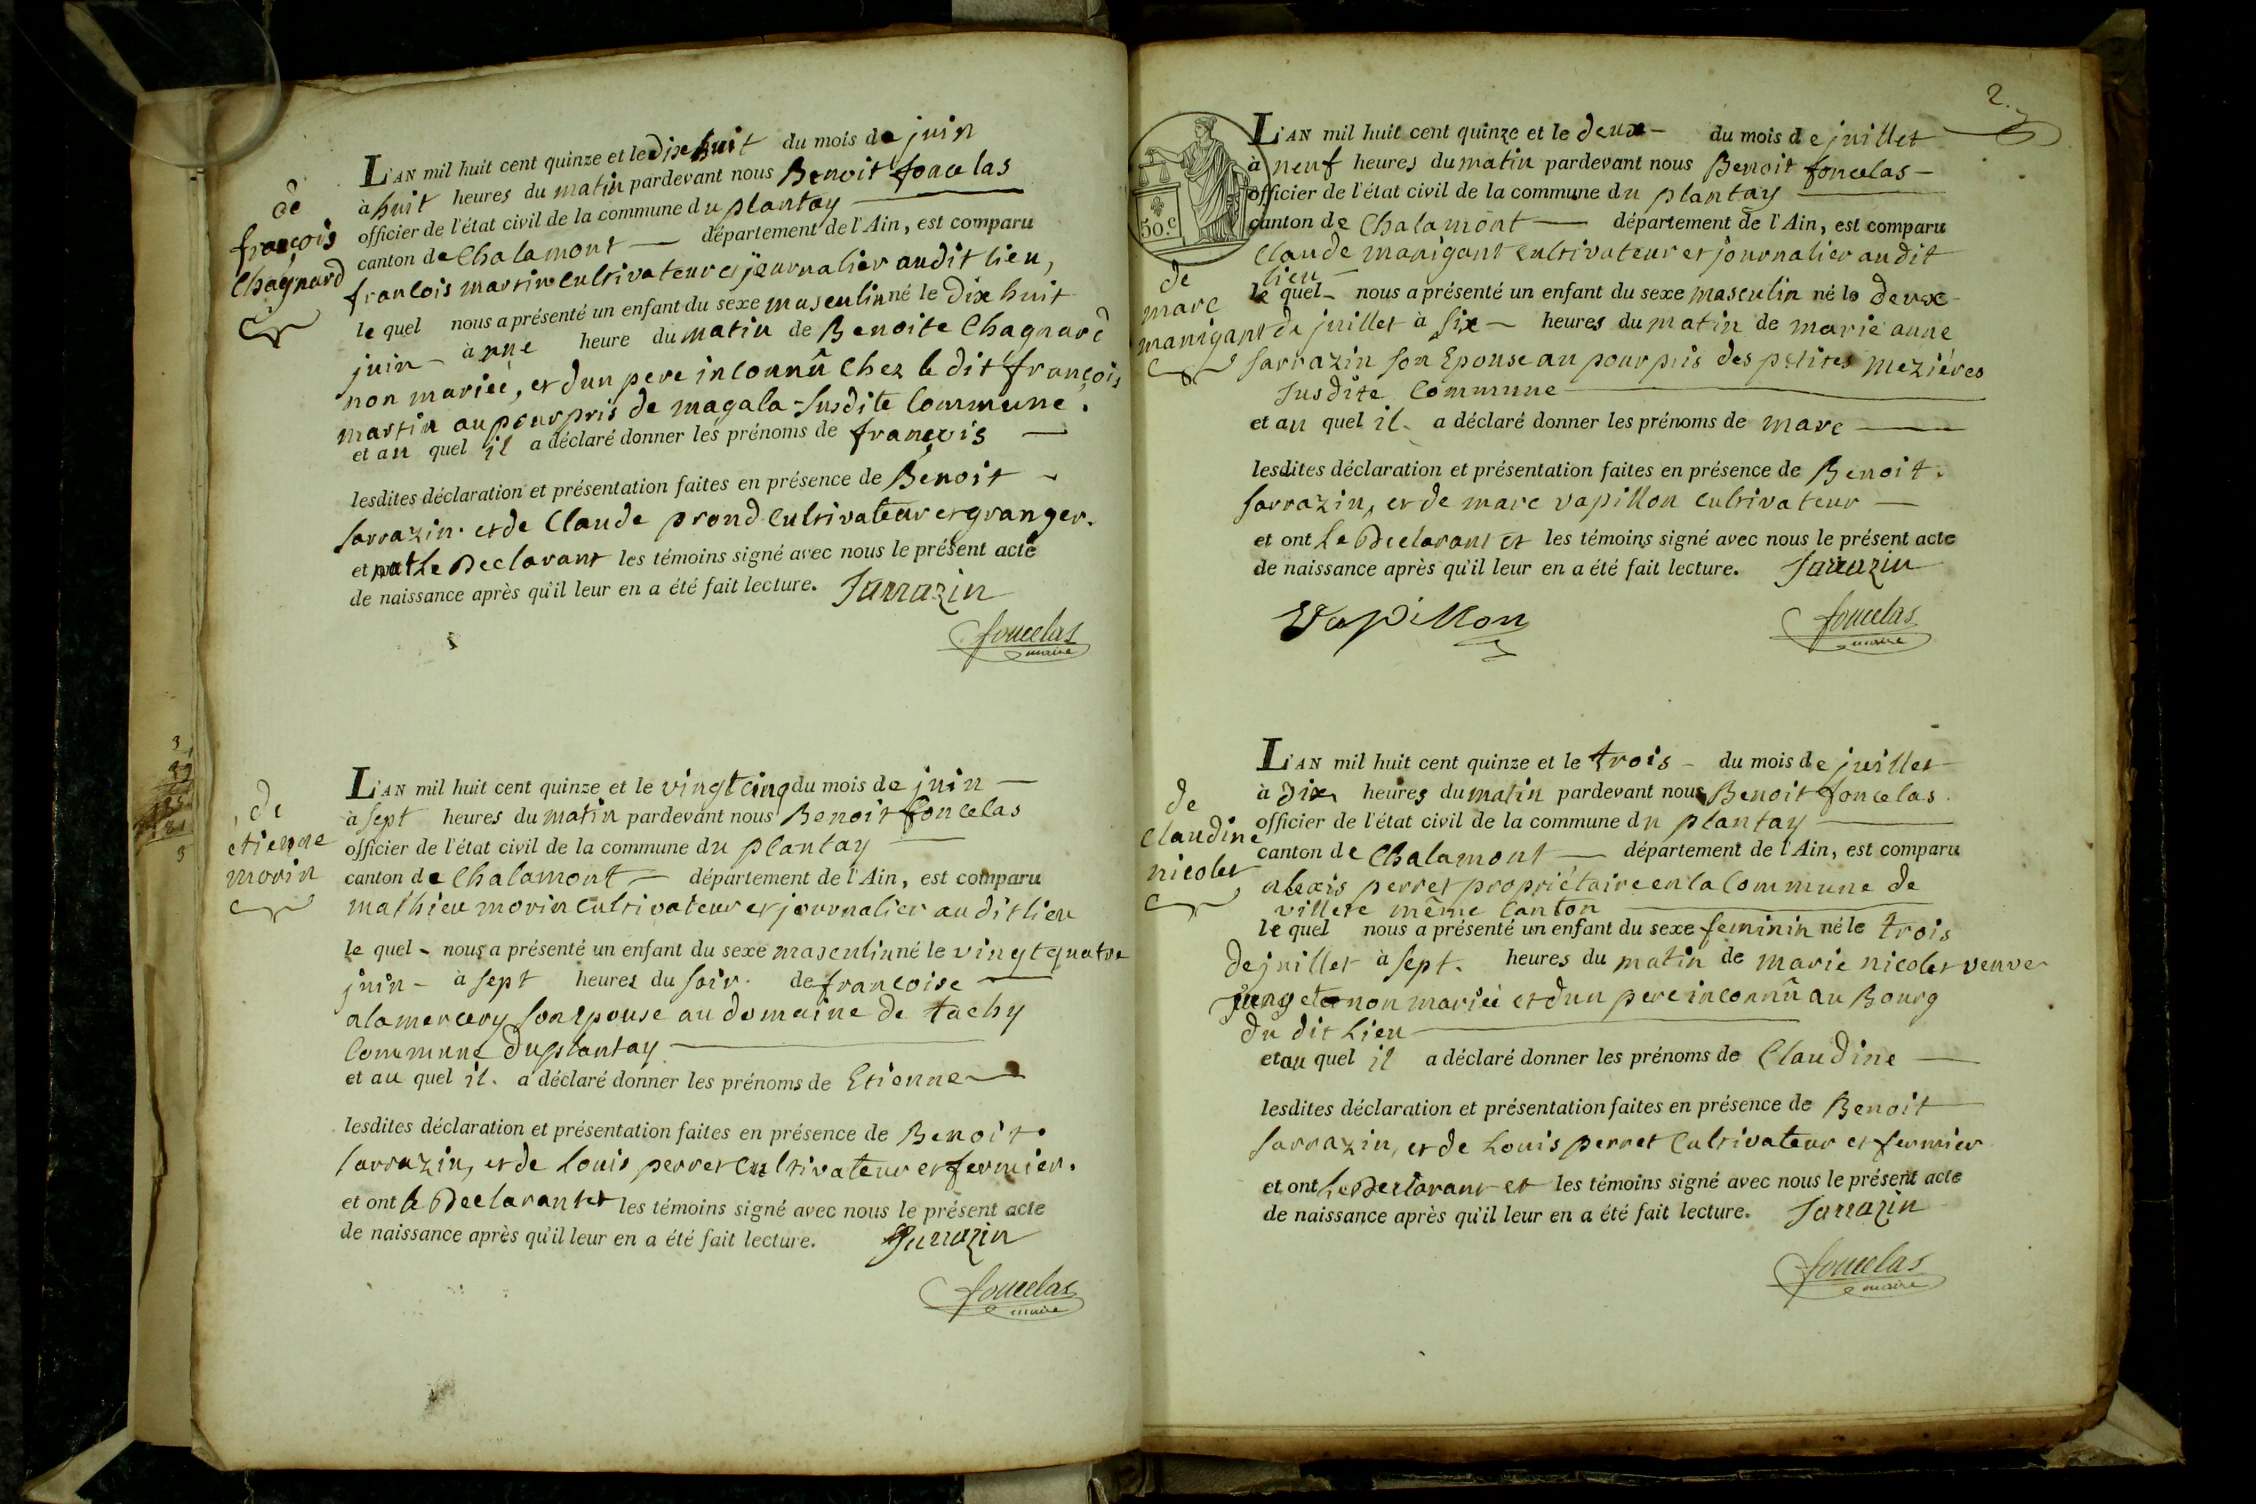 de
françois
Chagnard
L'AN mil huit cent quinze et le dix huit du mois de juin
à huit heures du matin pardevant nous Benoit foncelas
officier de l'état civil de la commune du plantay
canton de Chalamont département de l'Ain, est comparu
françois martin cultivateur et journalier audit lieu,
le quel nous a présenté un enfant du sexe masculin né le dix huit
juin à une heure du matin de Benoite Chagnard
non mariée, et dun pere inconnû Chez le dit françois
martin au pourpris de magala susdite Commune.
et au quel il a déclaré donner les prénoms de françois
lesdites déclaration et présentation faites en présence de Benoit
sarrazin et de Claude prond cultivateur et granger.
et ont Le Declarant les témoins signé avec nous le présent acte
de naissance après qu'il leur en a été fait lecture. Sarrazin
foncelas
maire
de
étienne
morin
L'AN mil huit cent quinze et le vingt cinq du mois de juin
à sept heures du matin pardevant nous Benoit foncelas
officier de l'état civil de la commune du plantay
canton de Chalamont département de l'Ain, est comparu
mathieu morin cultivateur et journalier au dit lieu
le quel nous a présenté un enfant du sexe masculin né le vingt quatre
juin à sept heures du soir. de françoise
alamercery son Epouse au domaine de tachy
Commune du plantay
et au quel il. a déclaré donner les prénoms de Etienne
lesdites déclaration et présentation faites en présence de Benoit
sarrazin, et de Louis perret cultivateur et fermier.
et ont le Declarant et les témoins signé avec nous le présent acte
de naissance après qu'il leur en a été fait lecture. Sarrazin
foncelas
maire
2.
50.c
de
marc
manigant
L'AN mil huit cent quinze et le deux du mois de juillet
à neuf heures du matin pardevant nous Benoit foncelas
officier de l'état civil de la commune du plantay
canton de Chalamont département de l'Ain, est comparu
Claude manigant cultivateur et journalier au dit
lieu
le quel nous a présenté un enfant du sexe masculin né le deux
de juillet à six heures du matin de marie anne
sarrazin son Epouse au pourpris des petites mezières
susdite Commune
et au quel il a déclaré donner les prénoms de marc
lesdites déclaration et présentation faites en présence de Benoit.
sarrazin, et de marc vapillon cultivateur
et ont Le Declarant et les témoins signé avec nous le présent acte
de naissance après qu'il leur en a été fait lecture. Sarrazin
Vapillon
foncelas
maire
de
Claudine
nicolet
L'AN mil huit cent quinze et le trois du mois de juillet
à dix heures du matin pardevant nous Benoit foncelas.
officier de l'état civil de la commune du plantay
canton de Chalamont département de l'Ain, est comparu
alexis perret propriétaire en la Commune de
villete même Canton
le quel nous a présenté un enfant du sexe feminin né le trois
de juillet à sept. heures du matin de marie nicolet veuve
non mariée et dun pere inconnû au Bourg
du dit Lieu
et au quel il a déclaré donner les prénoms de Claudine
lesdites déclaration et présentation faites en présence de Benoit
sarrazin, et de Louis perret Cultivateur et fermier
et ont Le Declarant et les témoins signé avec nous le présent acte
de naissance après qu'il leur en a été fait lecture. Sarrazin
foncelas
maire